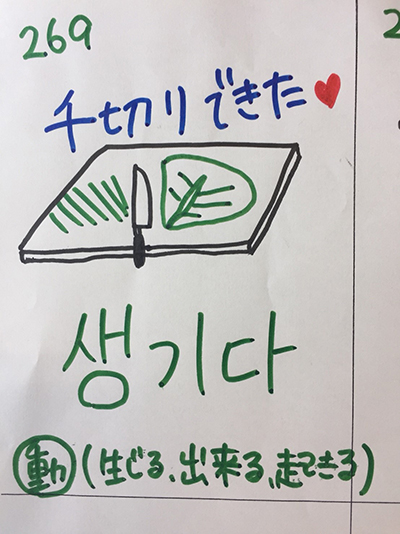 269
千切りできた♥
생기다
動 (生じる、出来る、起きる)